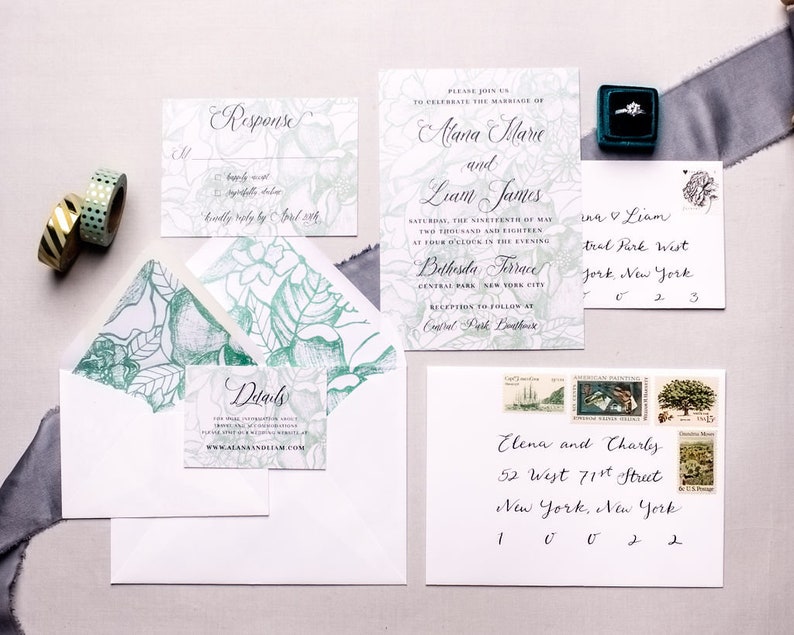 Response
M
happily accept
regretfully decline
kindly reply by April 19th
PLEASE JOIN US
TO CELEBRATE THE MARRIAGE OF
Alana Marie
and
Liam James
SATURDAY, THE NINETEENTH OF MAY
TWO THOUSAND AND EIGHTEEN
AT FOUR O'CLOCK IN THE EVENING
Bethesda Terrace
CENTRAL PARK NEW YORK CITY
RECEPTION TO FOLLOW AT
Central Park Boathouse
na ♥ Liam
ntral Park West
York, New York
0 0 2 3
Details
FOR MORE INFORMATION ABOUT
TRAVEL AND ACCOMMODATIONS
PLEASE VISIT OUR WEDDING WEBSITE AT
WWW.ALANAANDLIAM.COM
AMERICAN PAINTING
WILLIAM M. HARNETT
UNITED STATES POSTAGE
USA 15c
Grandma Moses
6c U.S. Postage
Elena and Charles
52 West 71st Street
New York, New York
1 0 0 2 2